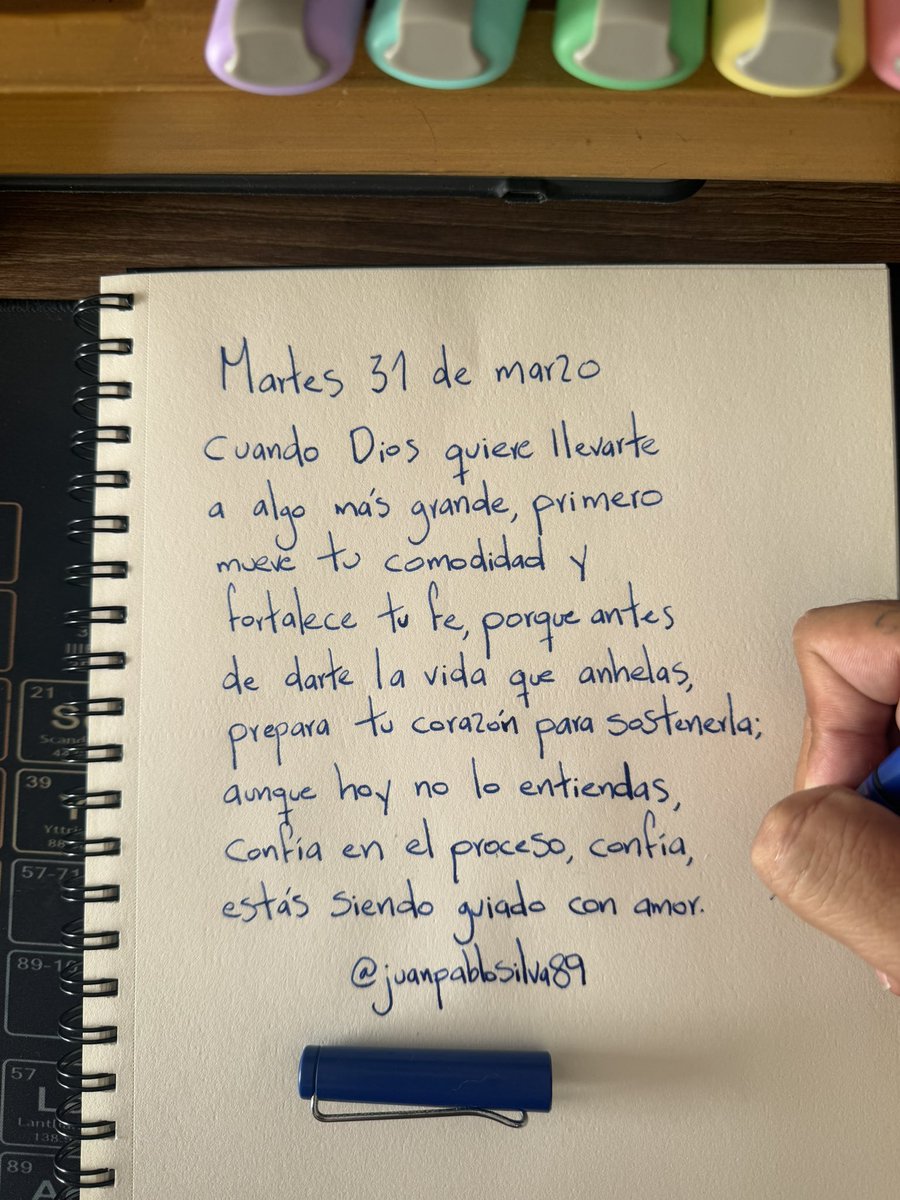 Martes 31 de marzo
Cuando Dios quiere llevarte
a algo más grande, primero
mueve tu comodidad y
fortalece tu fe, porque antes
de darte la vida que anhelas,
prepara tu corazón para sostenerla;
aunque hoy no lo entiendas,
confía en el proceso, confía,
estás siendo guiado con amor.
@juanpablosilva89
21
39
57-71
57
89